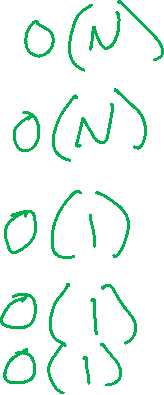 O(N)
O(N)
O(1)
O(1)
O(1)